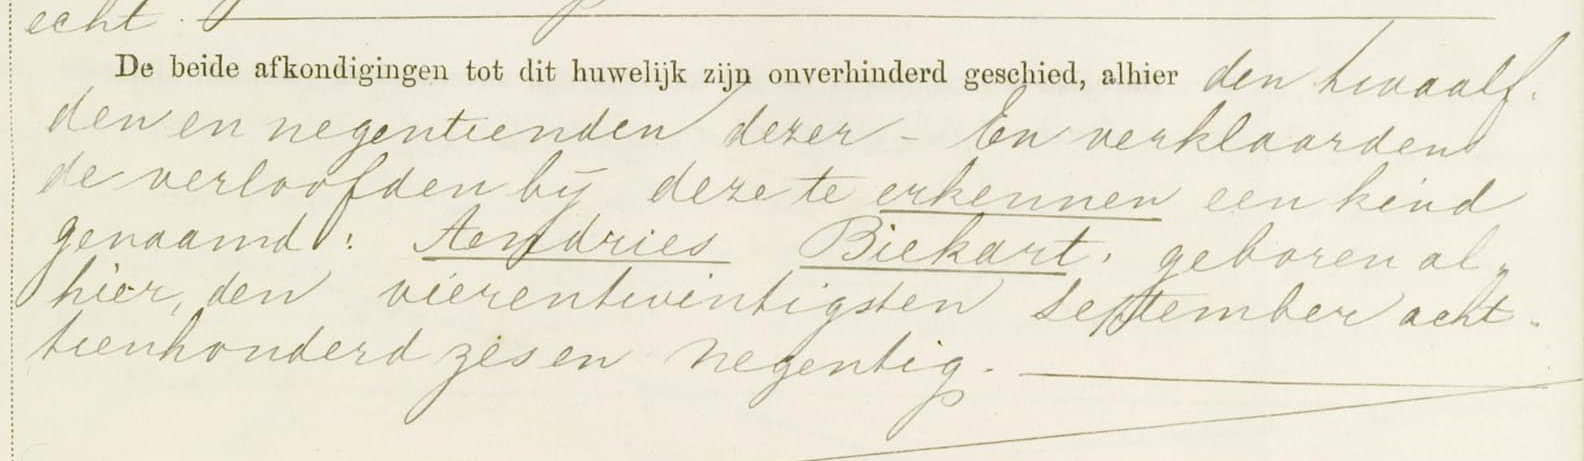 echt.
De beide afkondigingen tot dit huwelijk zijn onverhinderd geschied, alhier den twaalf-
den en negentienden dezer - En verklaarden
de verloofden bij deze te erkennen een kind
genaamd: Andries Biekart, geboren al„
hier, den vierentwintigsten September acht-
tienhonderd zes en negentig.